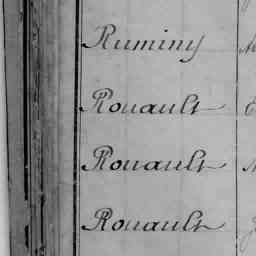 Ruminy
Rouault
Rouault
Rouault